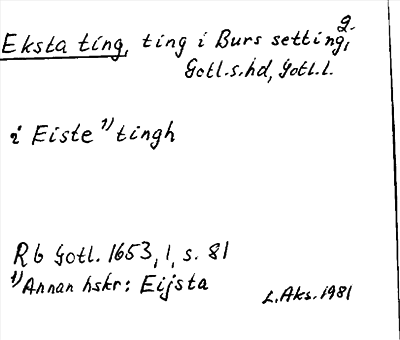 Eksta ting, ting i Burs setting,
Gotl.s.hd, Gotl.l.
i Eiste ¹⁾tingh
Rb Gotl. 1653, 1, s. 81
¹⁾Annan hskr: Eijsta
L.Aks. 1981